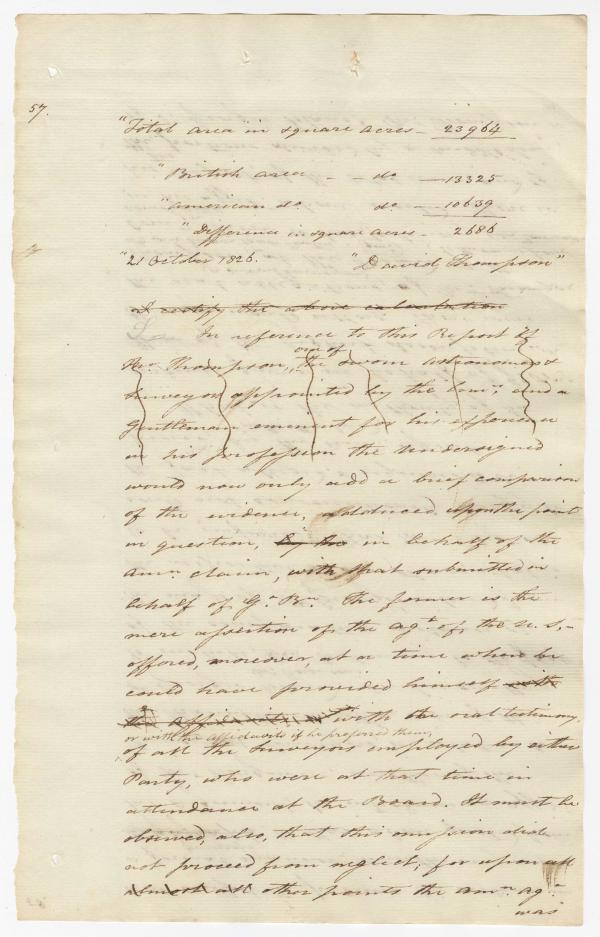 57.
"Total area in square acres – 23964
"British area – – do – 13325
"American do do – 10639
"Difference in square acres – 2686
"21 October 1826. "David Thompson"
I certify the above calculation
In reference to this Report of
Mr. Thompson, one of the sworn astronomers &
Surveyors appointed by the Comrs; and a
Gentleman eminent for his experience
in his profession the Undersigned
would now only add a brief comparison
of the evidence, adduced upon the point
in question, by the in behalf of the
Amn. claim, with that submitted in
behalf of Gt. Bn. The former is the
mere assertion of the agt. of the U. S, –
offered, moreover, at a time when he
could have provided himself with
the affidavits or with the oral testimony,
or with the affidavits if he preferred them,
of all the Surveyors employed by either
Party, who were at that time in
attendance at the Board. It must be
observed, also, that this omission did
not proceed from neglect; for upon all
almost all other points the Amn. agt.
was